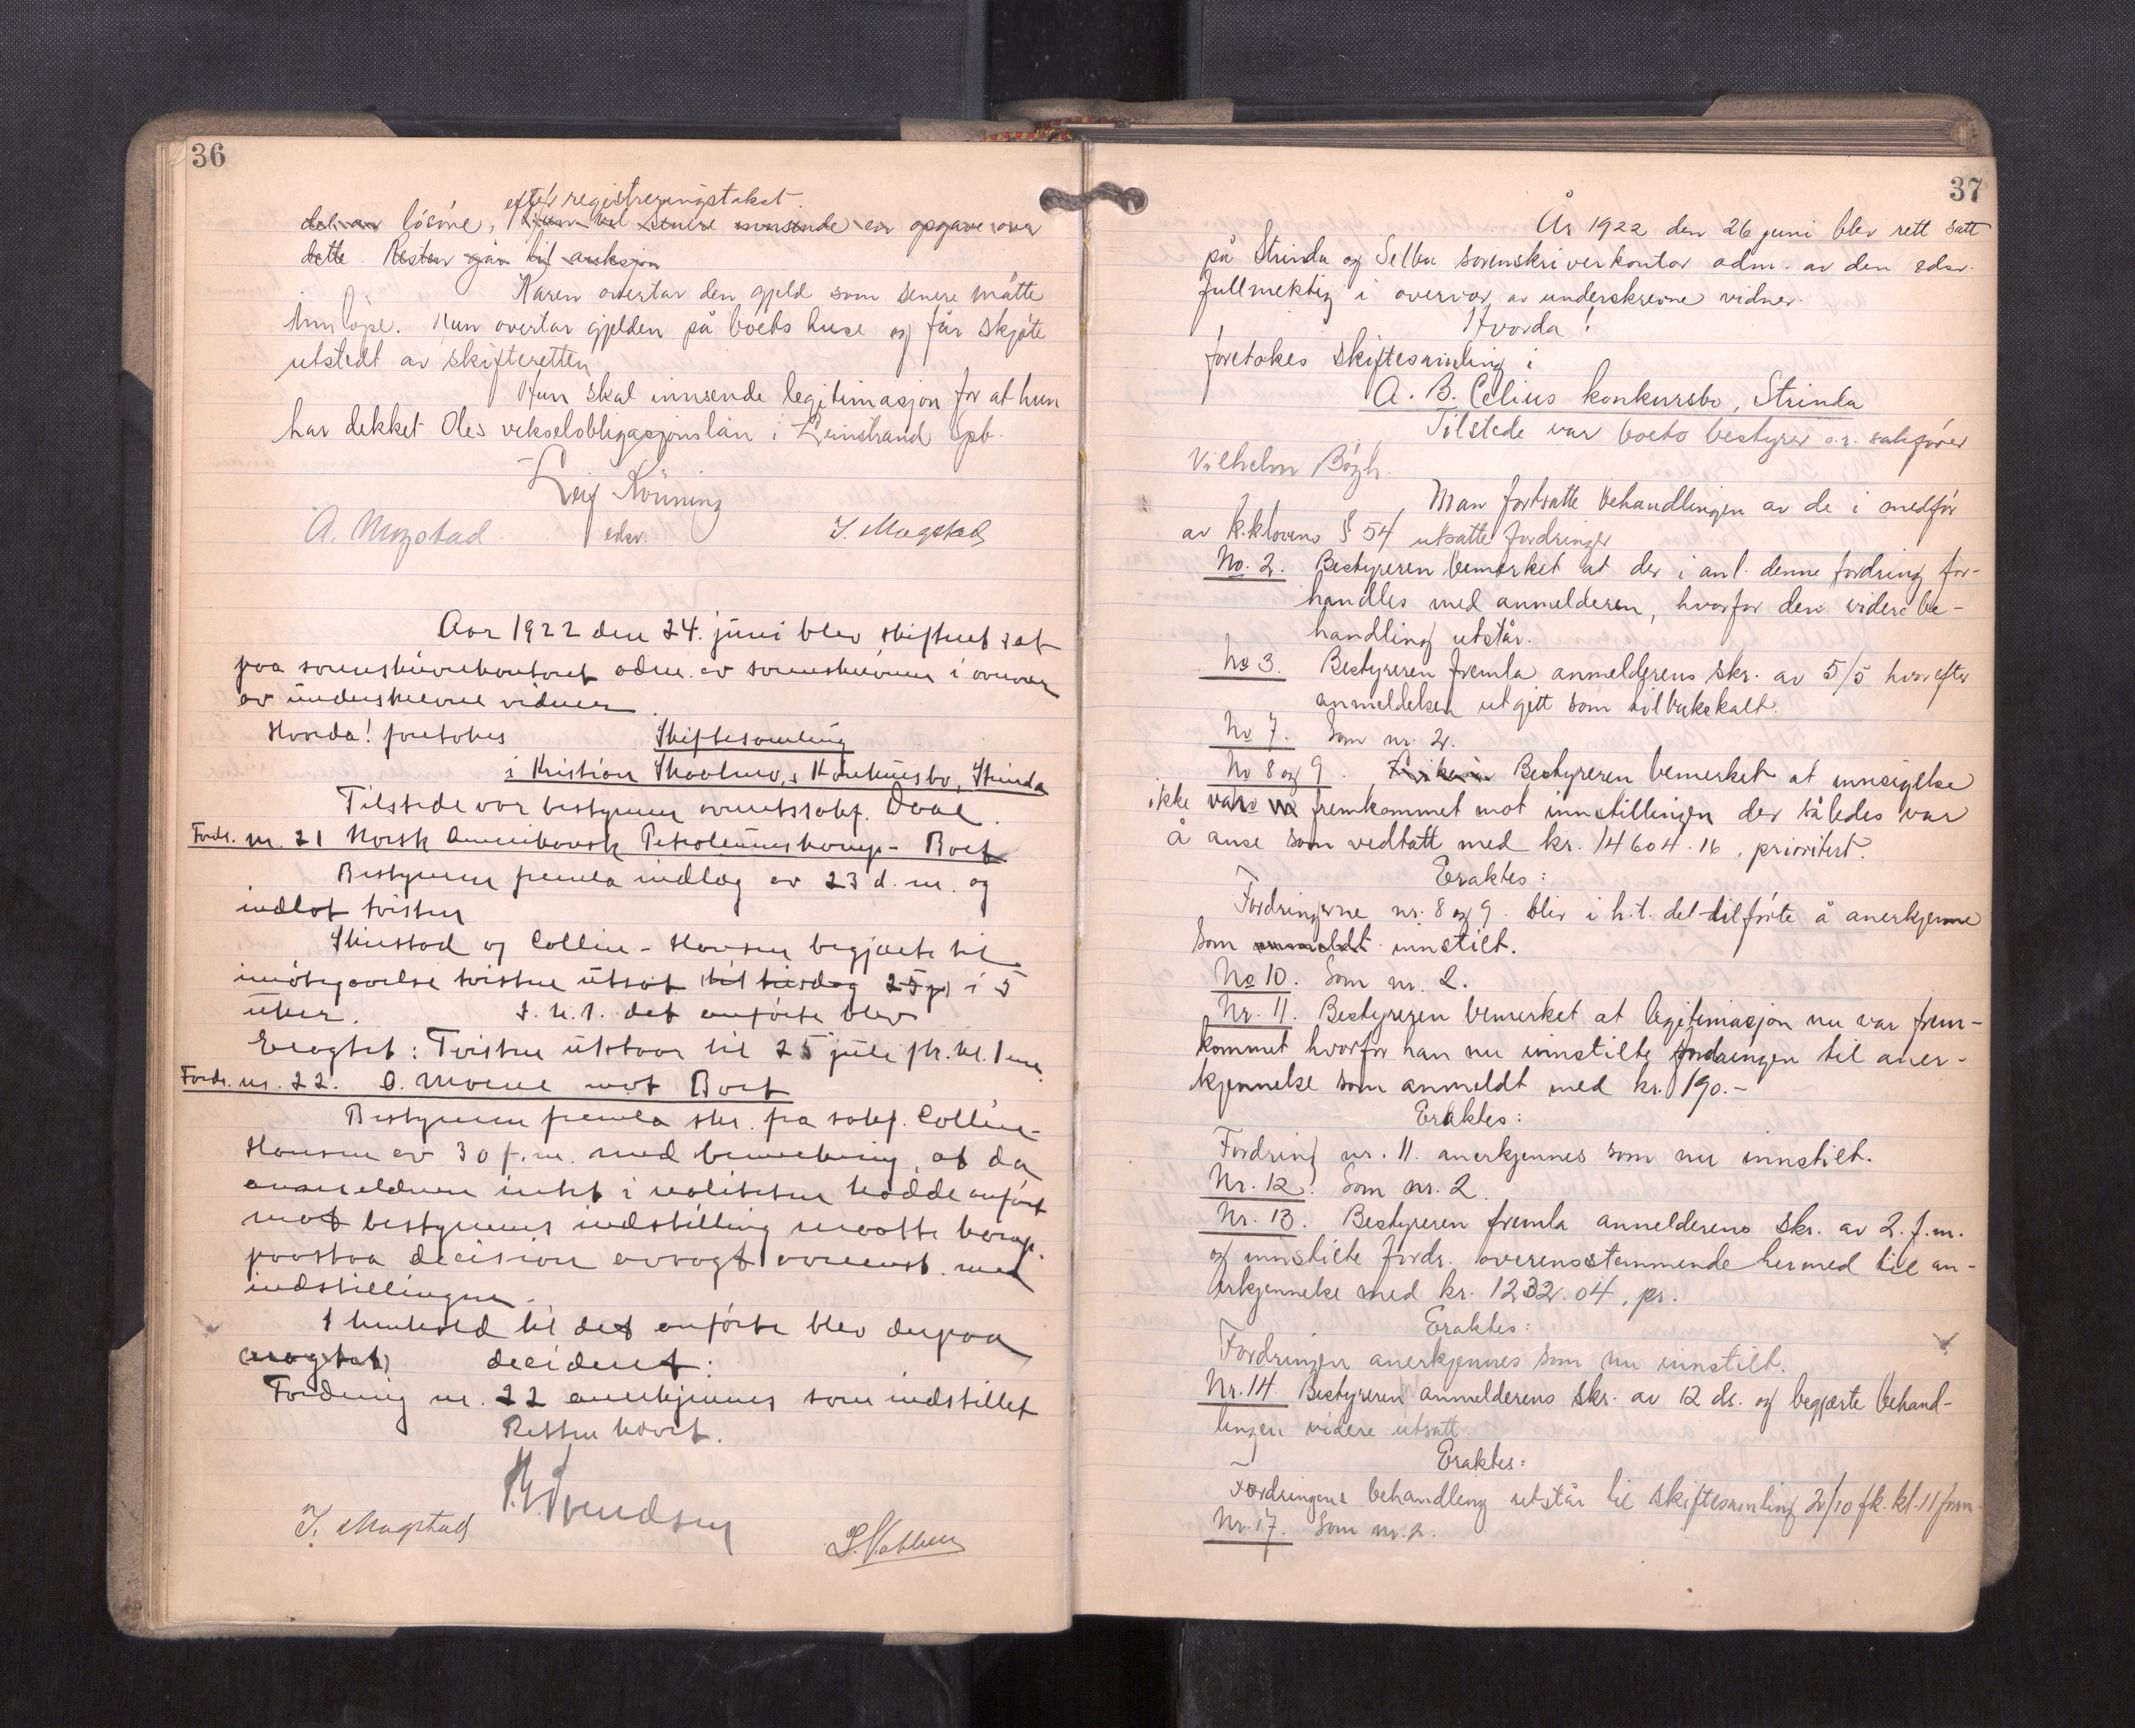 36
efter registreringstakst.
del av lösöre, Hun vil senere innsende en opgave over
dette. Resten går til auksjon
Karen overtar den gjeld som senere måtte
innlöpe. Hun overtar gjelden på boets huse og får skjöte
utstedt av skifteretten
Hun skal innsende legitimasjon for at hun
har dekket Oles vekselobligasjonslån i Leinstrand spb.
Leif
A. Mogstad edsv. I. Mogstad
Aar 1922 den 24. juni blev skifteret sat
paa sorenskriverkontoret adm. av sorenskriveren i overvær
av underskrevne vidner.
Hvorda! foretokes Skiftesamling
i Kristian Skaalvos Konkursbo, Strinda
Tilstede var bestyreren overretssakf. Daae.
Fordr. nr. 21 Norsk Amerikansk Petroleumskomp - Boet
Bestyreren fremla indlæg av 23 d. m. og
indlot tvisten
Skirstad og Collin-Hansen begjærte til
imötegaaelse tvisten utsat til tirsdag 25 juli 5
uker. I. h. t. det anförte blev
Eragtet: Tvisten utstaar til 25 juli fk. kl. 1 em.
Fordr. nr. 22. O. Moene mot Boet
Bestyreren fremla skr. fra sakf. Collin-
Hansen av 30 f. m. med bemerkning, at da
anmelderen intet i realiteten hadde anfört
mot bestyrerens indstilling maatte han
paastaa decision avsagt overenst. med
indstillingen.
I henhold til det anförte blev derpaa
eragtet decideret:
Fordring nr. 22 anerkjennes som indstillet
Retten hævet.
I. Mogstad
37
År 1922 den 26 juni blev rett satt
på Strinda og Selbu sorenskriverkontor adm. av den edsv.
fullmektig i overvær av underskrevne vidner.
Hvorda!
foretokes skiftesamling i
A. B. Celius konkursbo, Strinda
Tilstede var boets bestyrer o.r. sakförer
Vilhelm Bögh.
Man fortsatte behandlingen av de i medför
av k.klovens § 54 utsatte fordringer
No. 2. Bestyreren bemerket at der i anl. denne fordring for-
handles med anmelderen, hvorfor den videre be-
handling utstår.
No 3. Bestyreren fremla anmelderens skr. av 5/5 hvorefter
anmeldelsen utgått som tilbakekalt.
No 7. Som nr. 2.
No 8 og 9. Bestyreren bemerket at innsigelse
ikke var fremkommet mot innstillingen der således var
å anse som vedtatt med kr. 14604.16, prioritert.
Eraktes:
Fordringerne nr. 8 og 9. blir i h.t. det tilförte å anerkjenne
som anmeldt innstilt.
No 10. Som nr. 2.
Nr. 11. Bestyreren bemerket at legitimasjon nu var frem-
kommet hvorfor han nu innstilte fordringen til aner-
kjennelse som anmeldt med kr. 190.-
Eraktes:
Fordring nr. 11. anerkjennes som nu innstilt.
Nr. 12. Som nr. 2.
Nr. 13. Bestyreren fremla anmelderens skr. av 2. f.m.
og innstilte fordr. overensstemmende hermed til an-
erkjennelse med kr. 1232.04, pr.
Eraktes:
Fordringen anerkjennes som nu innstilt.
Nr. 14. Bestyreren anmelderens skr. av 12 ds. og begjærte behand-
lingen videre utsatt.
Eraktes:
Fordringens behandling utstår til skiftesamling 2/10 fk. kl. 11 form.
Nr. 17. Som nr. 2.